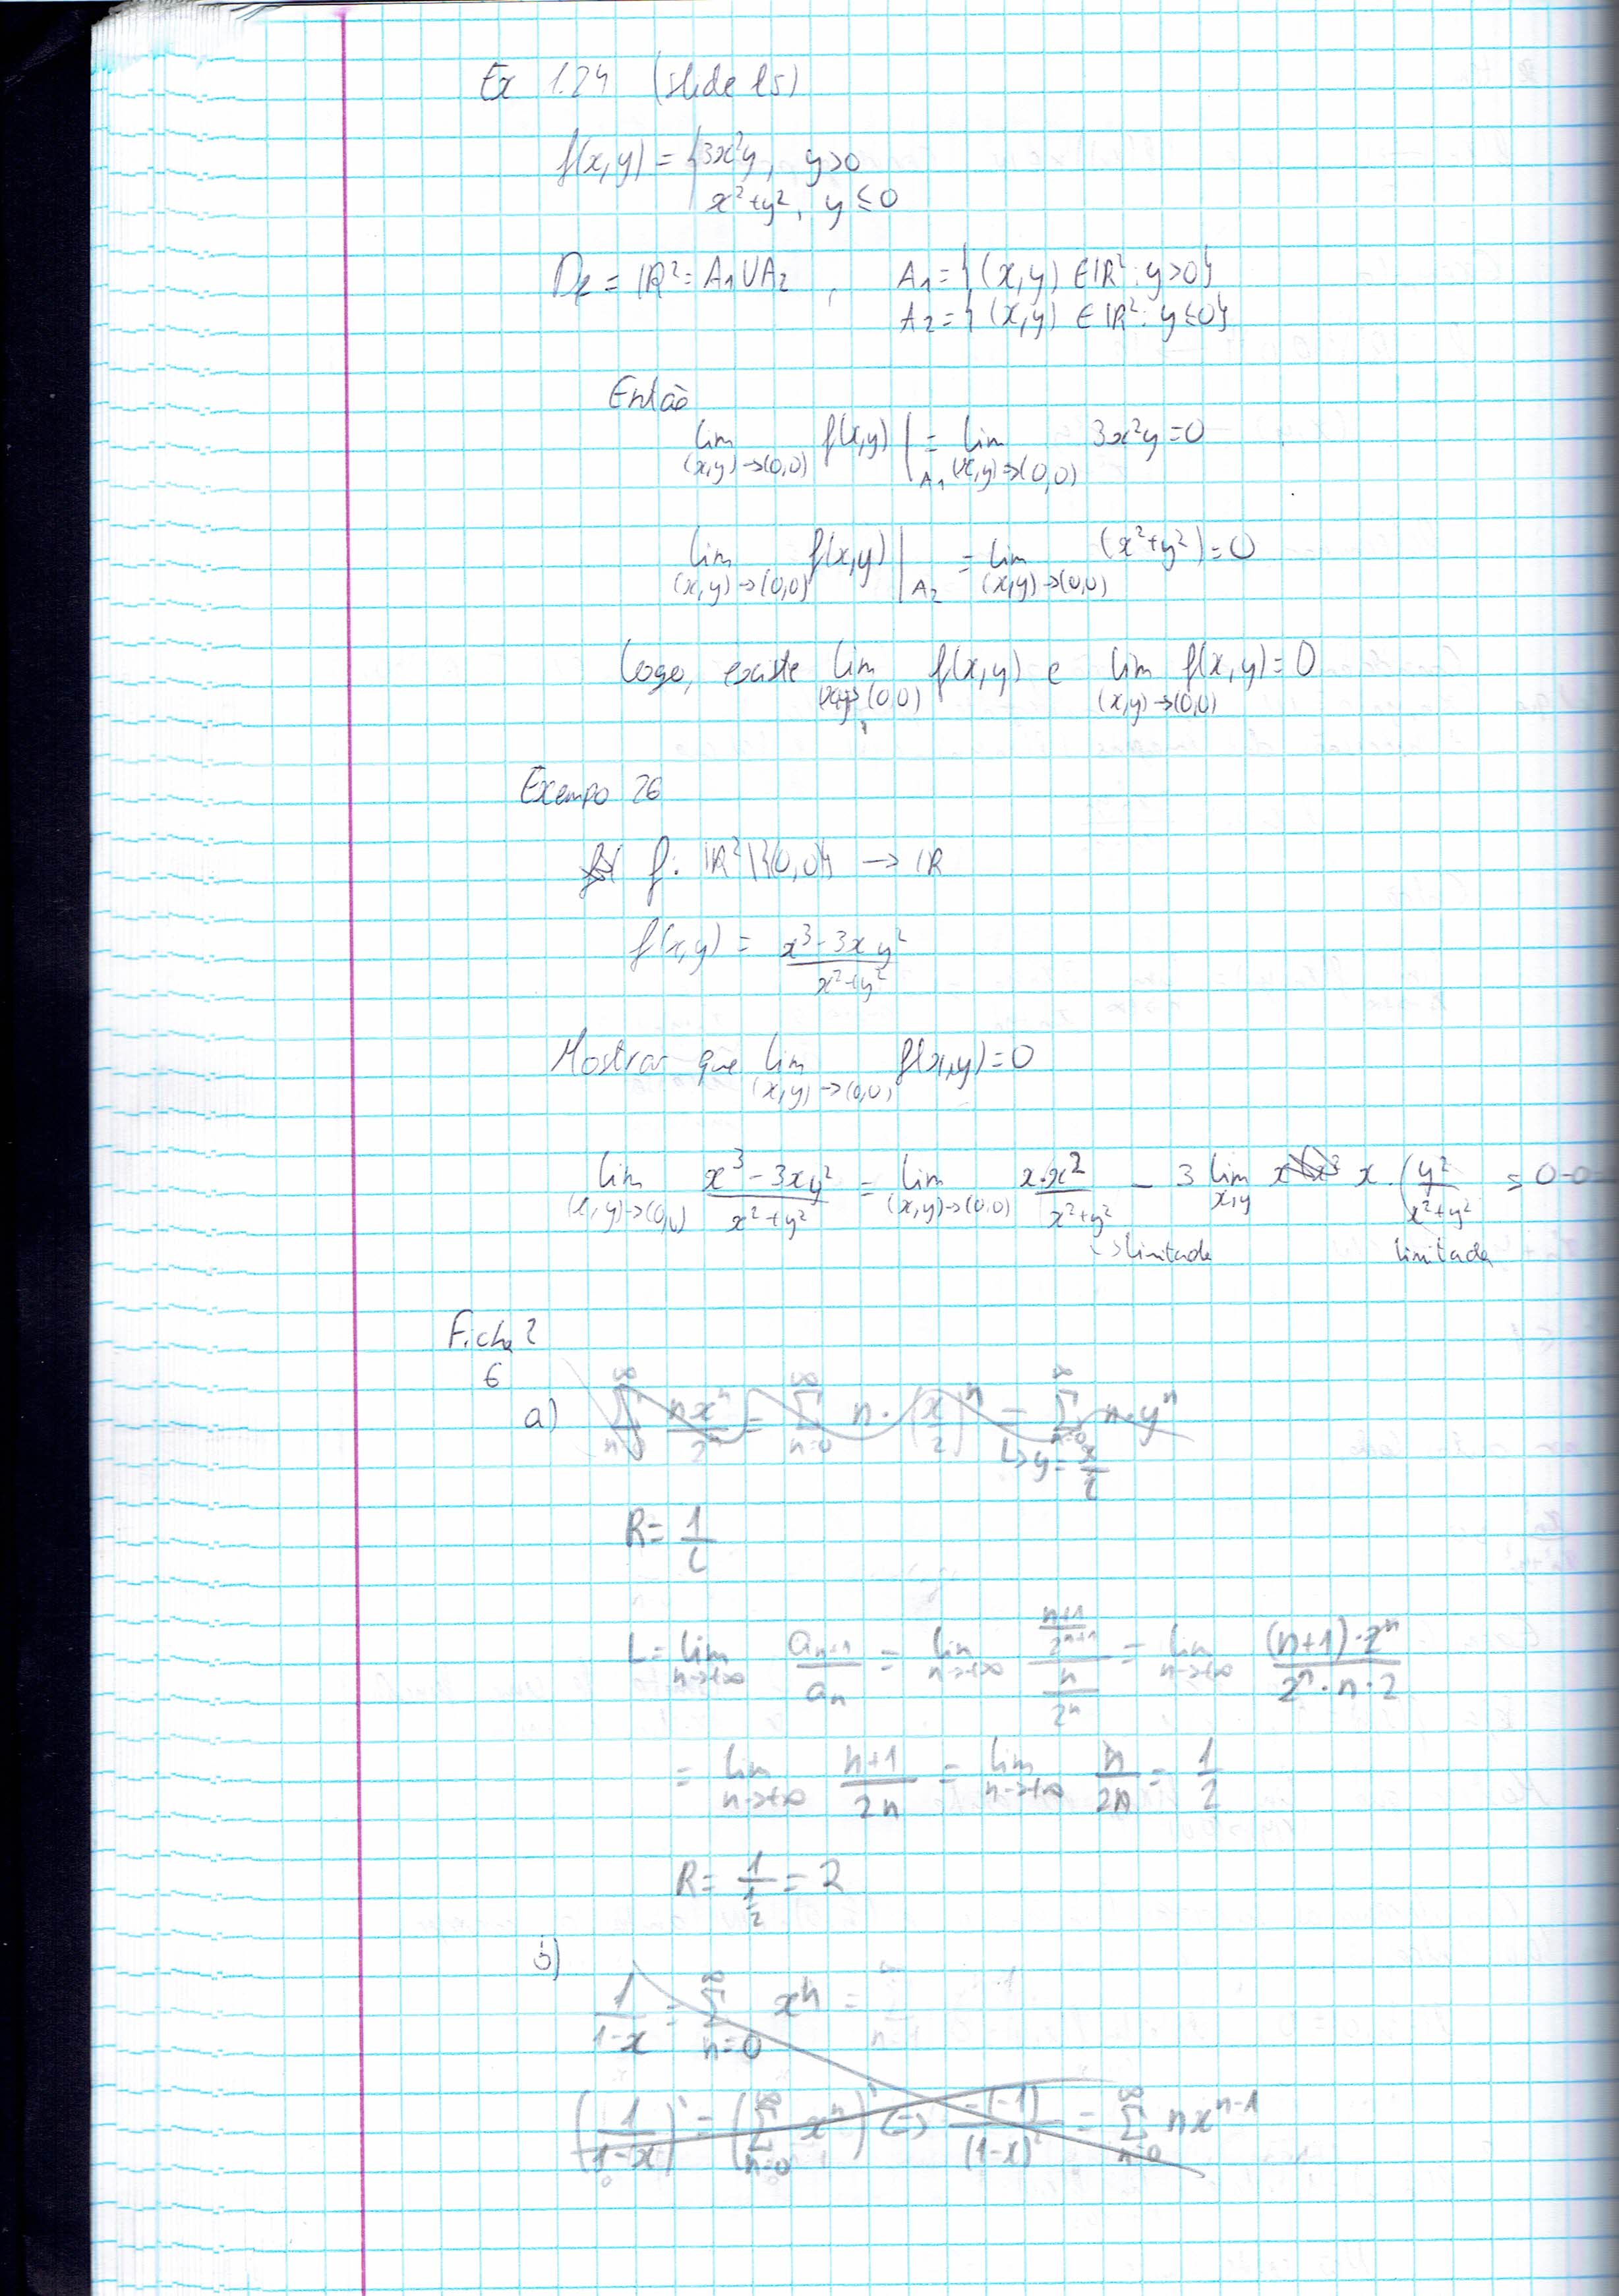 Ex 1.24 (slide 15)
f(x,y) = { 3x²y, y>0
x²+y², y ≤ 0
Df = IR² = A1 U A2 , A1 = { (x,y) ∈ IR² : y>0 }
A2 = { (x,y) ∈ IR² : y ≤ 0 }
Então
lim (x,y)→(0,0) f(x,y) |A1 = lim (x,y)→(0,0) 3x²y = 0
lim (x,y)→(0,0) f(x,y) |A2 = lim (x,y)→(0,0) (x²+y²) = 0
Logo, existe lim (x,y)→(0,0) f(x,y) e lim (x,y)→(0,0) f(x,y) = 0
Exempo 26
f: IR²\{(0,0)} → IR
f(x,y) = (x³ - 3xy²)/(x²+y²)
Mostrar que lim (x,y)→(0,0) f(x,y) = 0
lim (x,y)→(0,0) (x³ - 3xy²)/(x²+y²) = lim (x,y)→(0,0) x·x²/(x²+y²) - 3 lim x,y x · (y²/(x²+y²) = 0-0
↳ limitada limitada
Ficha 2
6
a) ∑ n=0 ∞ nxⁿ/2ⁿ = ∑ n=0 ∞ n · (x/2)ⁿ = ∑ n=0 ∞ n·yⁿ
↳ y = x/2
R = 1/L
L = lim n→+∞ an+1/an = lim n→+∞ ((n+1)/2ⁿ⁺¹)/(n/2ⁿ) = lim n→+∞ (n+1)·2ⁿ/(2ⁿ·n·2)
= lim n→+∞ (n+1)/2n = lim n→+∞ n/2n = 1/2
R = 1/(1/2) = 2
b)
1/(1-x) = ∑ n=0 ∞ xⁿ =
(1/(1-x))' = (∑ n=0 ∞ xⁿ)' (=) -(-1)/(1-x)² = ∑ n=0 ∞ nxⁿ⁻¹